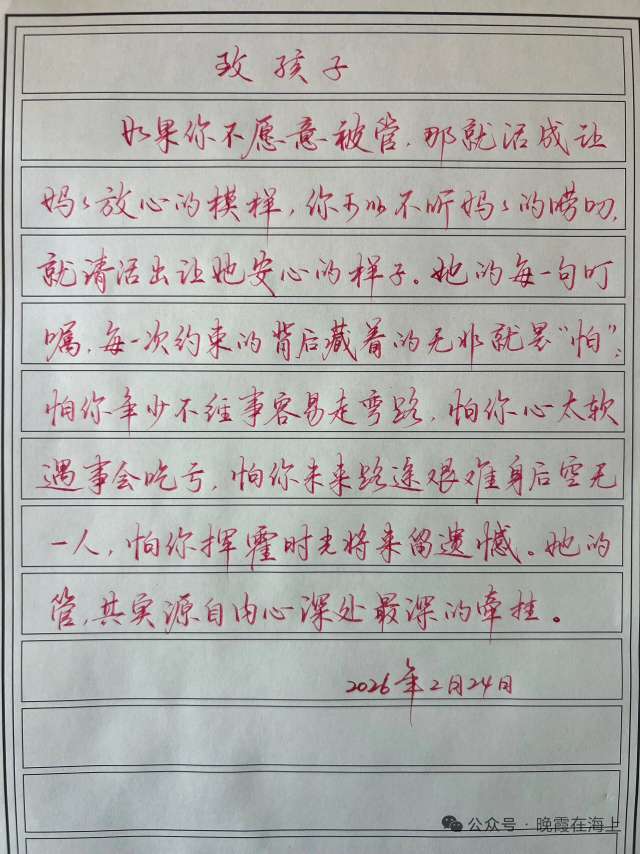 致孩子
如果你不愿意被管，那就活成让
妈妈放心的模样，你可以不听妈妈的唠叨，
就请活出让她安心的样子。她的每一句叮
嘱，每一次约束的背后藏着的无非就是“怕”：
怕你年少不经事容易走弯路，怕你心太软
遇事会吃亏，怕你未来路途艰难身后空无
一人，怕你挥霍时光将来留遗憾。她的
管，其实源自内心深处最深的牵挂。
2026年2月24日
公众号·晚霞在海上